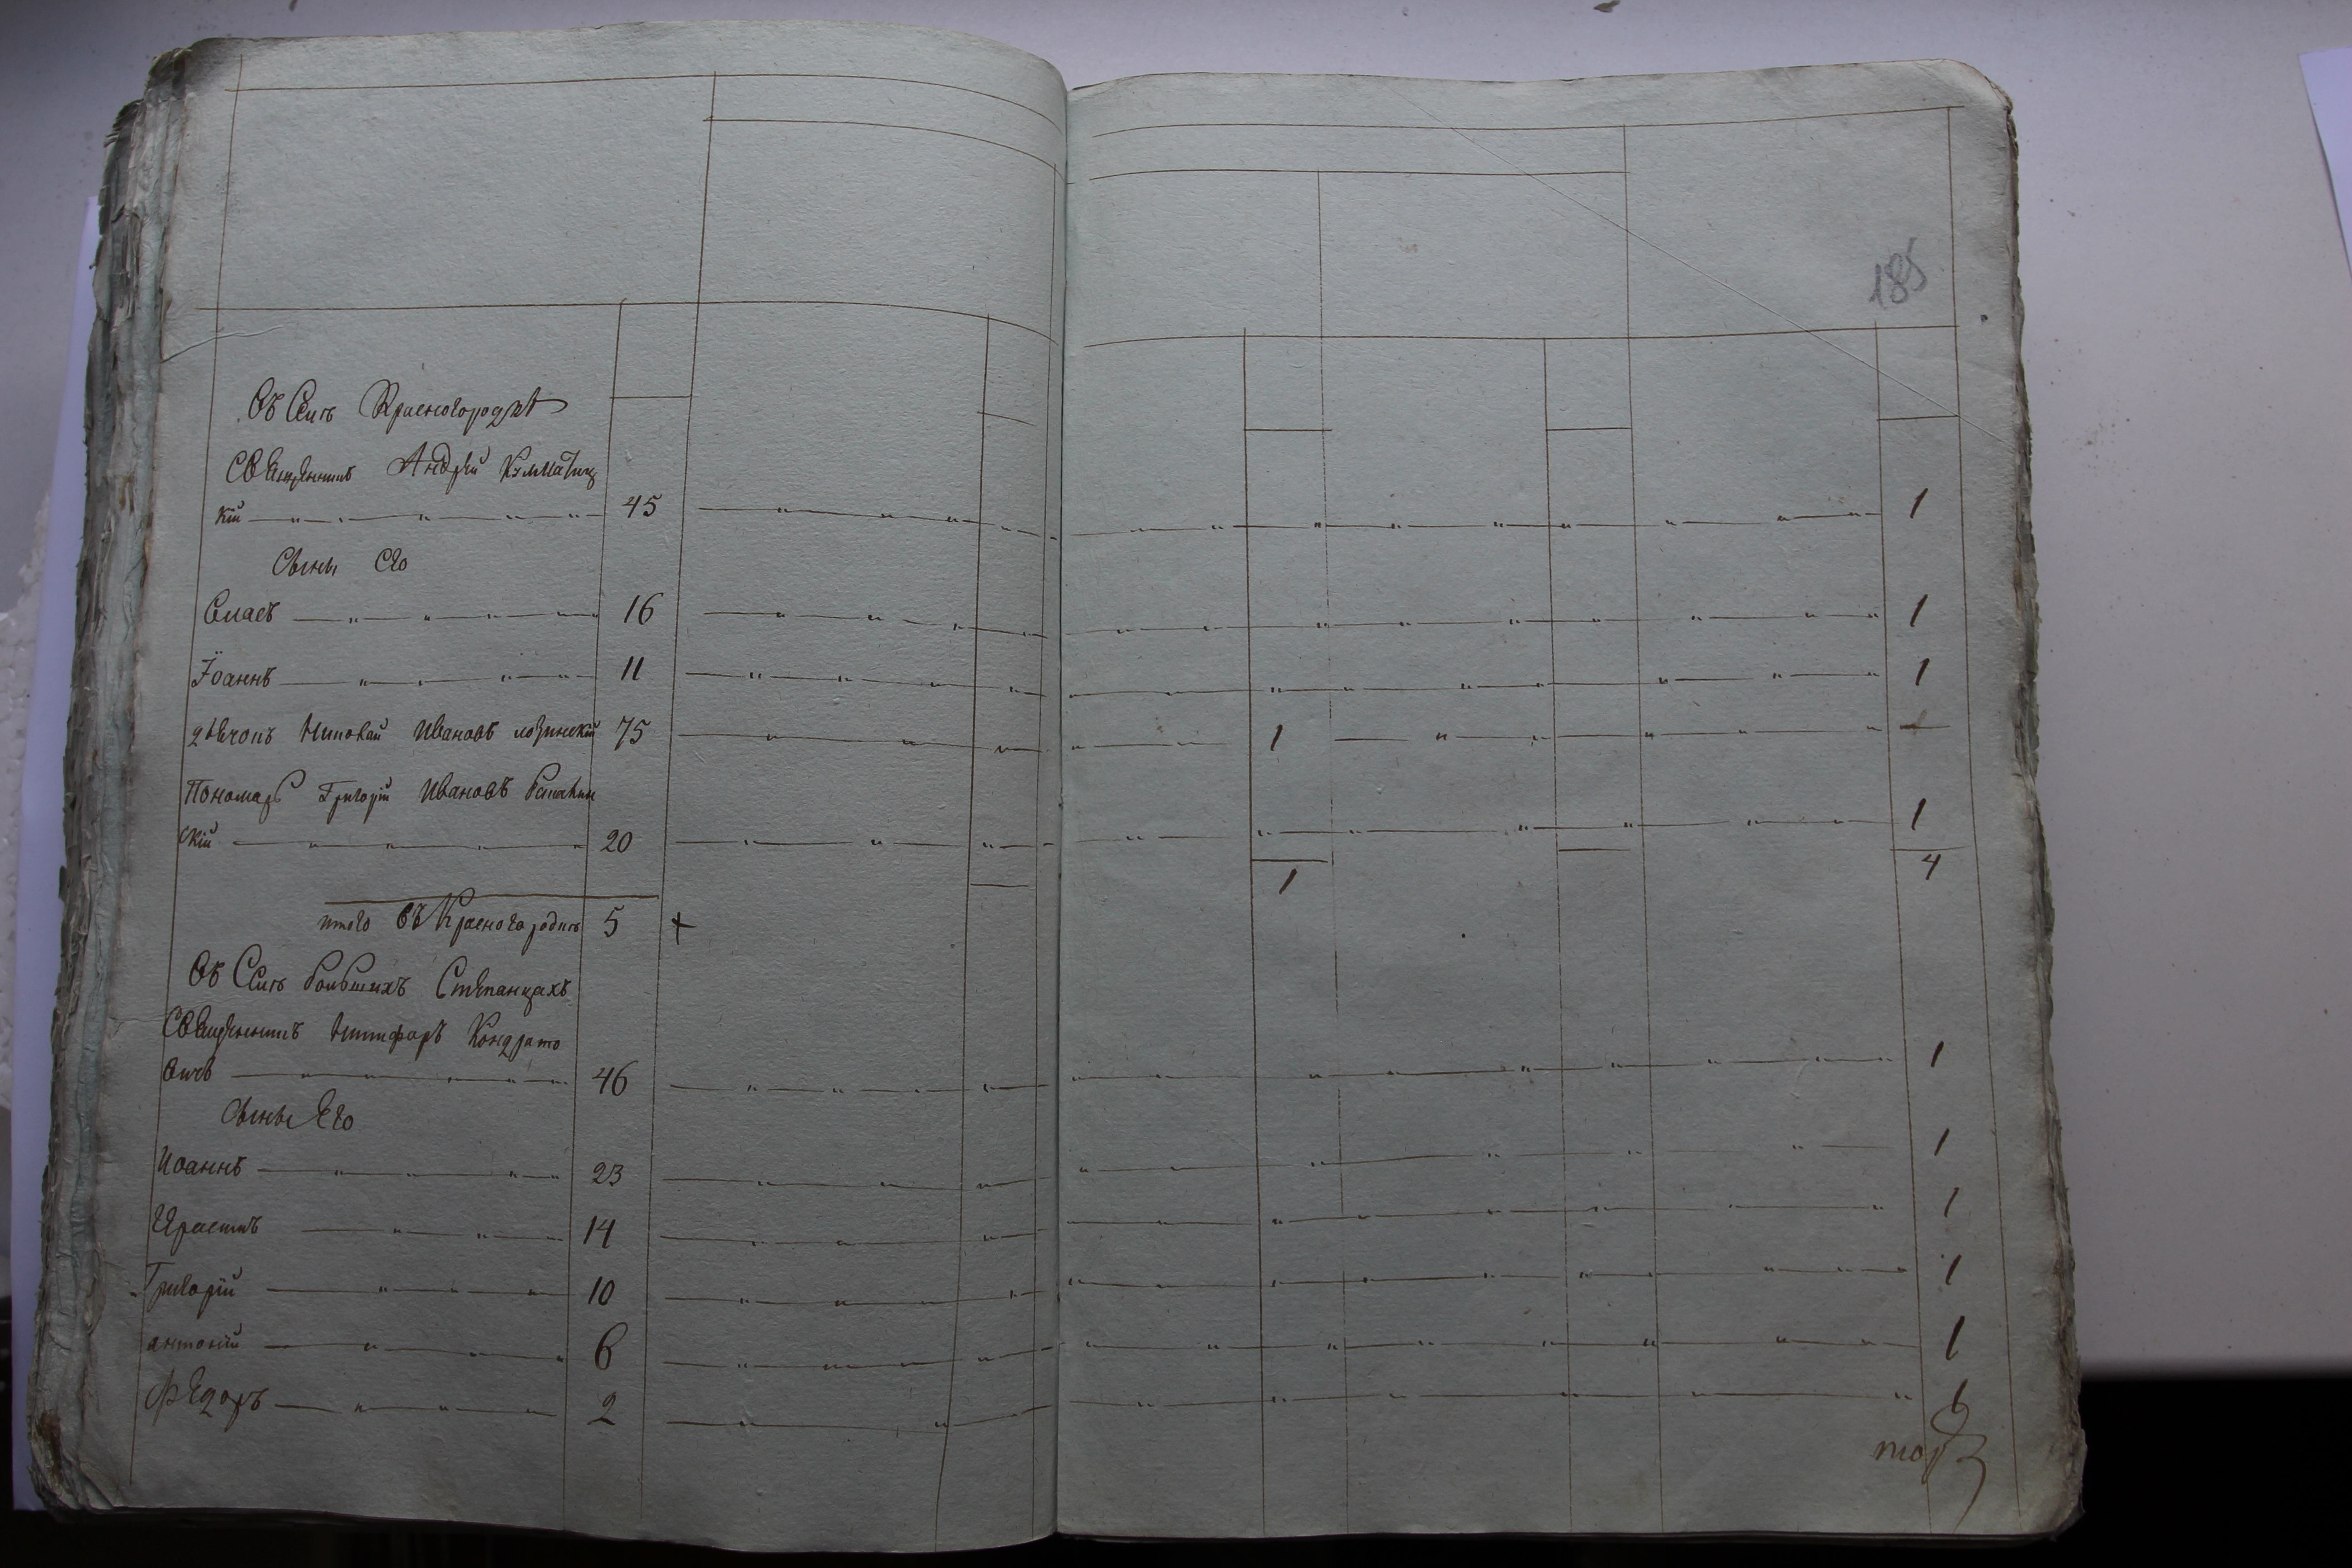 185
Въ Селѣ Красногородкѣ
Священникъ Андрей
кій 45 1
Сыны Его
Власъ 16 1
Іоаннъ 11 1
дьячокъ Николай Ивановъ Лозинскій 75 1
Пономарь Григорій Ивановъ
скій 20 1
1 4
итого въ Красногородкѣ 5 +
Въ Селѣ Большихъ Степанцахъ
Священникъ Никифоръ Кондрато
вичъ 46 1
Сыны Его
Иоаннъ 23 1
Ерастъ 14 1
Григорій 10 1
антоній 6 1
Федоръ 2 1